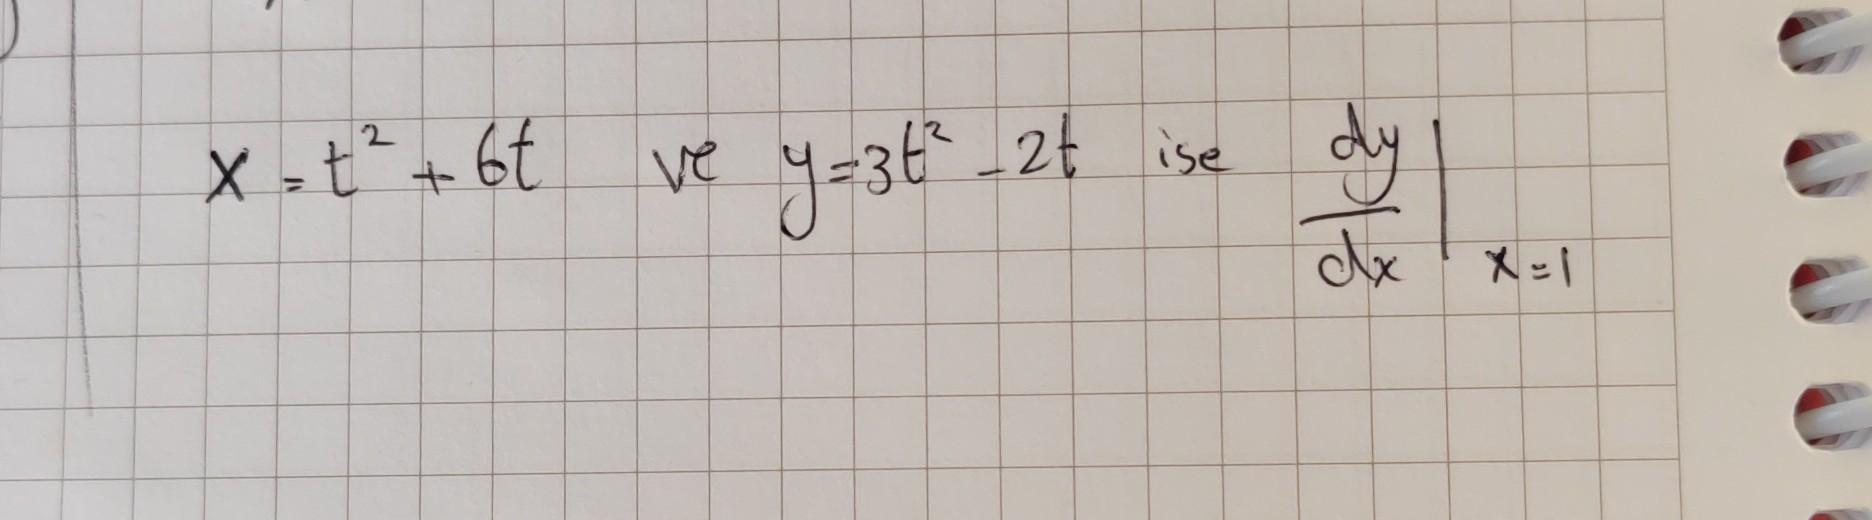 x = t² + 6t ve y = 3t² - 2t ise dy/dx | x = 1